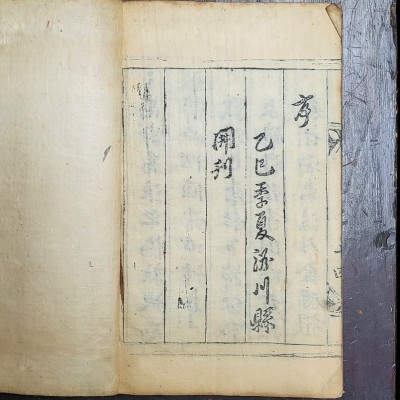 序
乙巳季夏 川縣
開刊